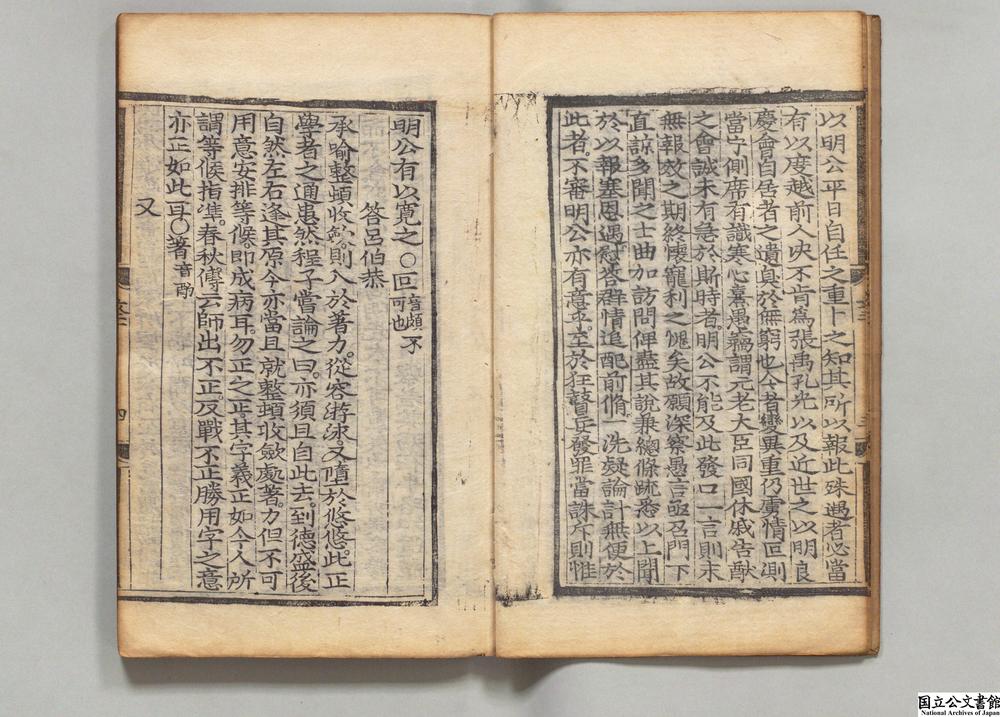 以明公平日自任之重卜之知其所以報此殊遇者必當
有以度越前人決不肯爲張禹孔光以及近世之以明良
慶會自居者之遺臭於無窮也今者變異重仍虜情叵測
當宁側席有識寒心熹愚竊謂元老大臣同國休戚告猷
之會誠未有急於斯時者明公不能及此發口一言則未
無報效之期終懷寵利之慚矣故願深察愚言亟召門下
直諒多聞之士曲加訪問俾盡其說兼總條疏悉以上聞
於以報塞恩遇慰答群情追配前脩一洗疑論計無便於
此者不審明公亦有意乎至於狂瞽妄發罪當誅斥則惟
明公有以寬之○叵音頗不可也
答呂伯恭
承喻整頓收斂則入於著力從容游泳又墮於悠悠此正
學者之通患然程子嘗論之曰亦須且自此去到德盛後
自然左右逢其原今亦當且就整頓收斂處著力但不可
用意安排等候即成病耳勿正之正其字義正如今人所
謂等候指準春秋傳云師出不正反戰不正勝用字之意
亦正如此耳○著音酌
又
四
国立公文書館
National Archives of Japan